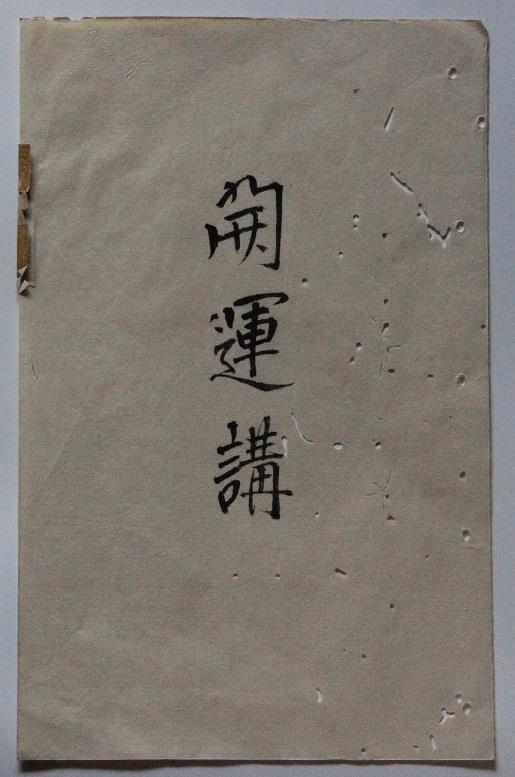 開運講